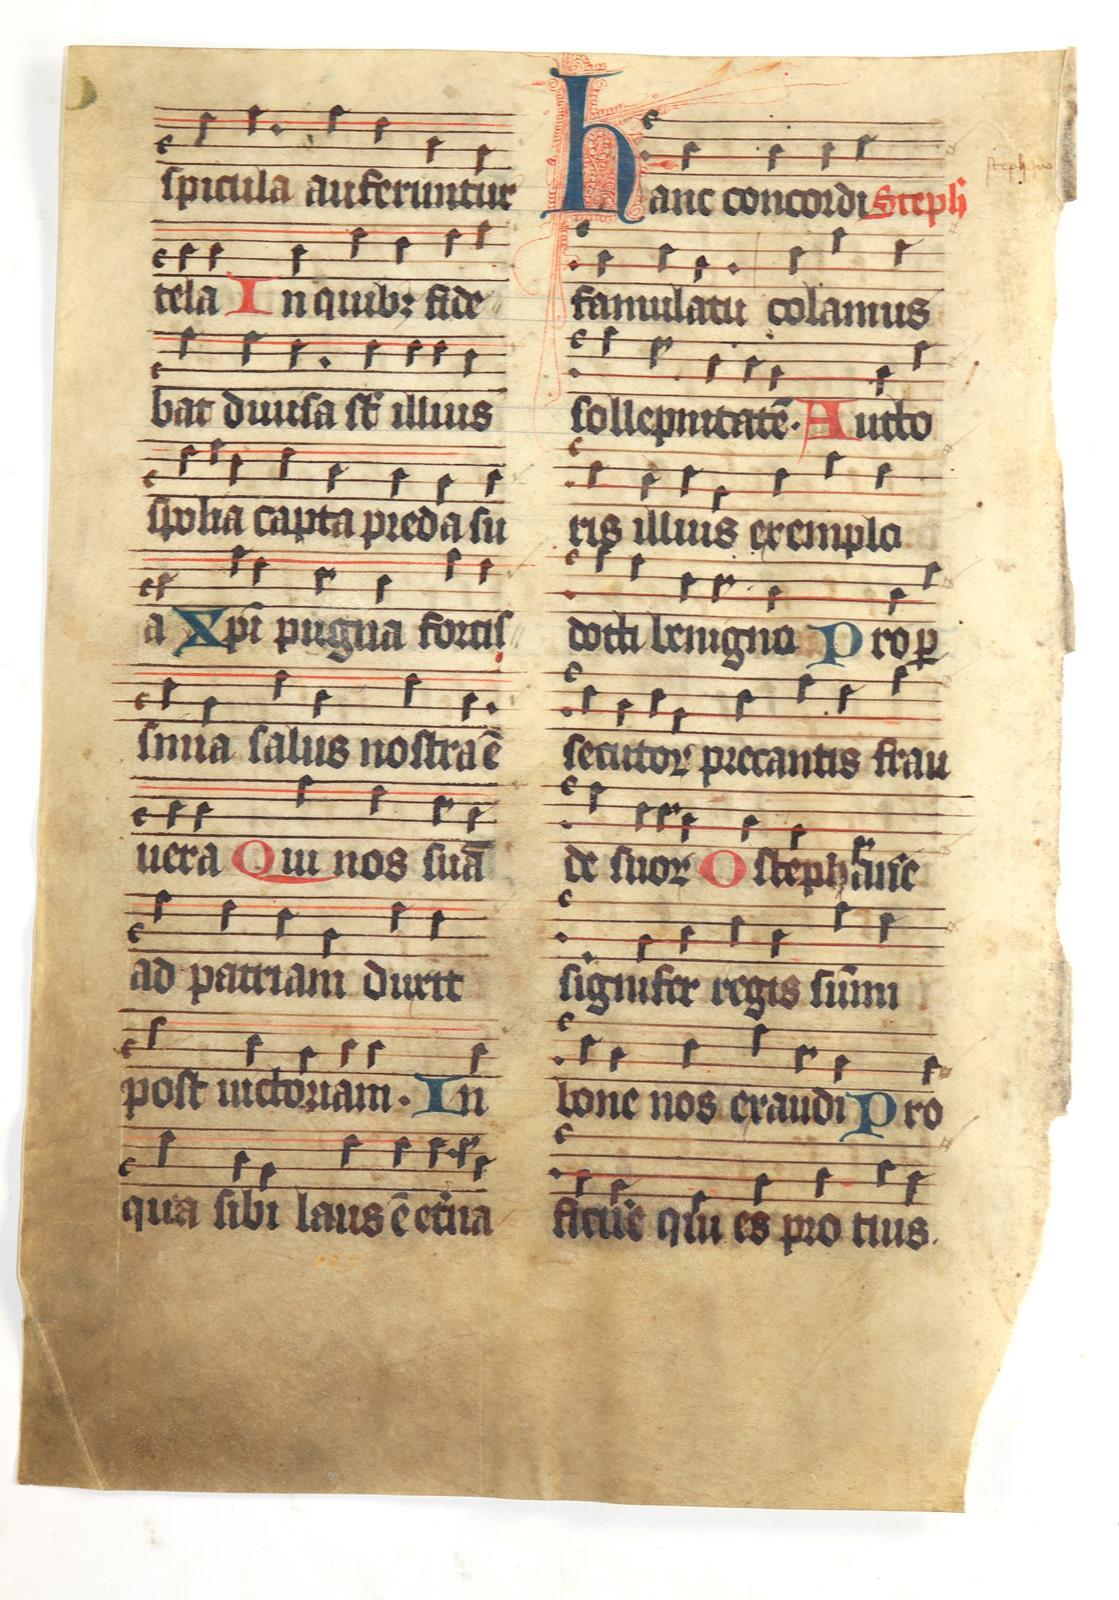 spicula auferuntur
tela In quib; fide
bat diuisa st illius
spolia capta preda su
a Xpi pugna fortis
sima salus nostra ē
uera Qui nos suā
ad patriam duxit
post uictoriam. In
qua sibi laus ē et̄na
hanc concordi Steph
famulatu colamus
sollepnitatē. Aucto
ris illius exemplo
docti benigno Pro ꝑ
secutor precantis frau
de suor O stephane
signifer regis sūmi
bone nos exaudi Pro
ficue qui es pro tuis.